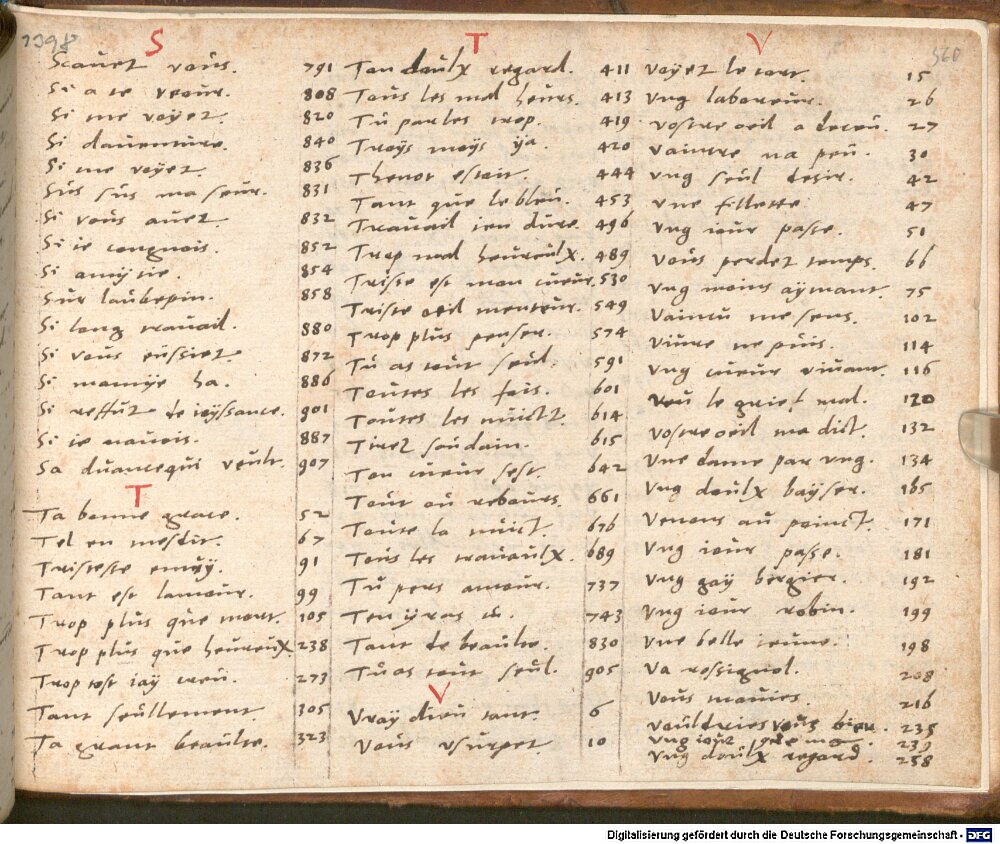 1398
S
Scauez vous. 791
Si a te veoir. 808
Si me voyez. 820
Si dauenture. 840
Si me voyez. 836
Sus sus ma seur. 831
Si vous auez. 832
Si ie congnois. 852
Si amytie. 854
Sur laubepin. 858
Si long trauail. 880
Si vous eussiez. 872
Si mamye ha. 886
Si reffuz de ioyssance. 901
Si ie nauois. 887
Sa duancequi veult. 907
T
Ta bonne grace. 52
Tel en mesdit. 67
Tristesse ennuy. 91
Tant est lamour. 99
Trop plus que mort. 105
Trop plus que heureux. 238
Trop tost iay creu. 273
Tant seullement. 305
Ta grant beaulte. 323
T
Ton doulx regard. 411
Tous les mal heurs. 413
Tu parles trop. 419
Troys moys ya. 420
Thenot estoit. 444
Tant que le bleu. 453
Trauail ien dure. 496
Trop mal heureulx. 489
Triste est mon cueur. 530
Triste oeil menteur. 549
Trop plus penser. 574
Tu as tout seul. 591
Toutes les fois. 601
Toutes les nuict. 614
Tirez soudain. 615
Ton cueur sest 642
Tout au rebours. 661
Toute la nuict. 676
Tous les trauaulx. 689
Tu pers amour. 737
Ten yras tu. 743
Tant de beaulte. 830
Tu as tout seul. 905
V
Vray dieu tant. 6
Vous vsurpez 10
V
560
Voyez le tort. 15
Vng laboreur. 26
Vostre oeil a deceu. 27
Vaincre na peu. 30
Vng seul desir. 42
Vne fillette 47
Vng iour passe. 51
Vous perdez temps. 66
Vng moins aymant. 75
Vaincu me sens. 102
Viure ne puis. 114
Vng cueur viuant. 116
Veu le grief mal. 120
Vostre oeil ma dict. 132
Vne dame par vng. 134
Vng doulx bayser. 165
Venons au poinct. 171
Vng iour passe. 181
Vng gay bergier. 192
Vng iour robin. 199
Vne belle ieune. 198
Va rossignol. 208
Vous mauies. 216
Vouldries vous bien. 235
Vng iour que 239
Vng doulx regard. 258
Digitalisierung gefördert durch die Deutsche Forschungsgemeinschaft - DFG